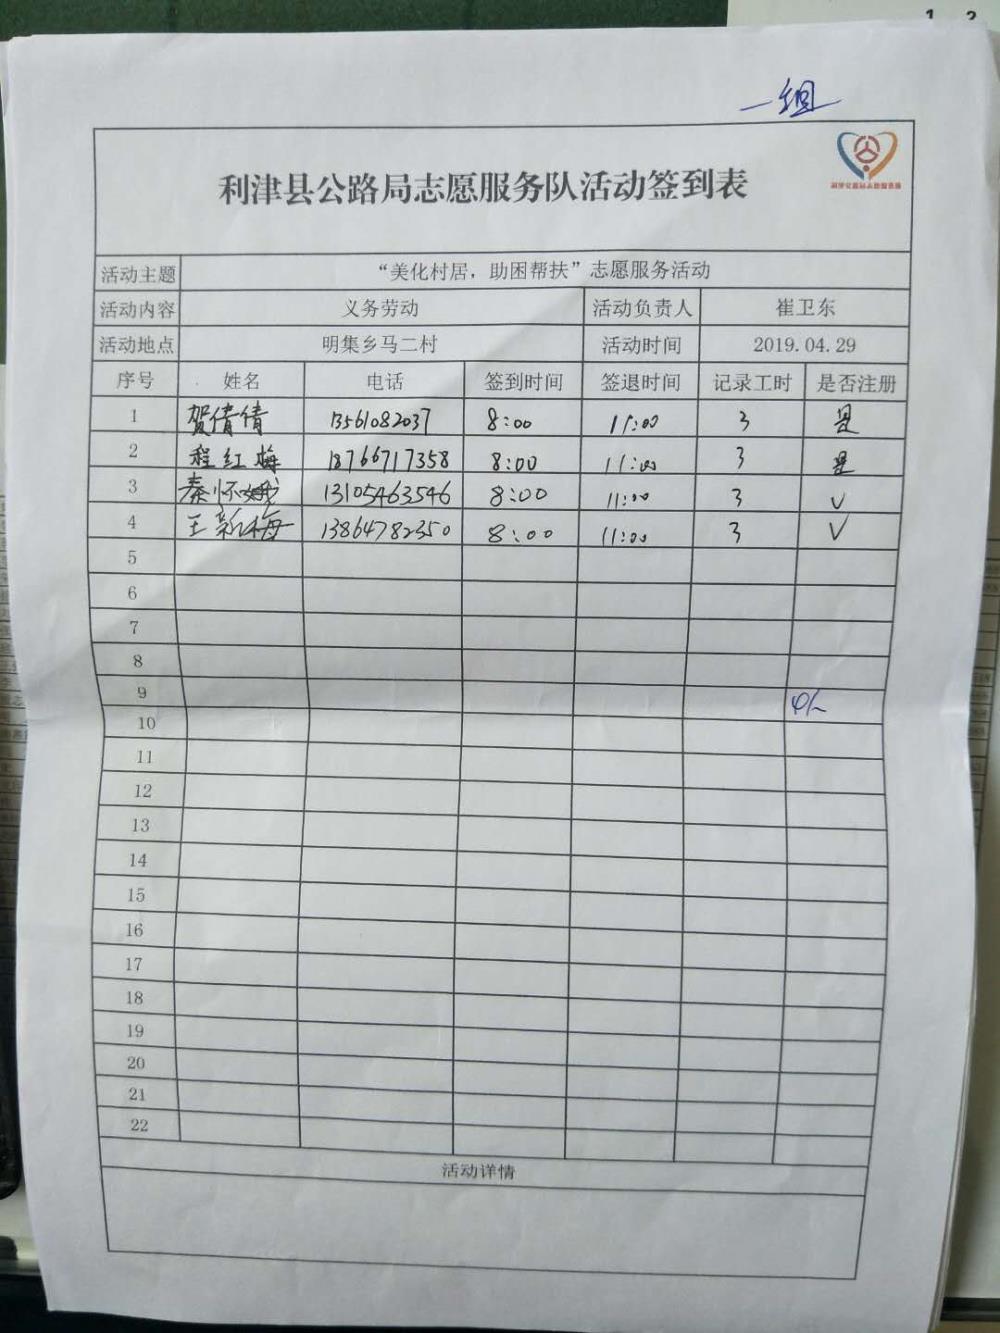 一组
利津县公路局志愿服务队活动签到表
活动主题 “美化村居，助困帮扶”志愿服务活动
活动内容 义务劳动 活动负责人 崔卫东
活动地点 明集乡马二村 活动时间 2019.04.29
序号 姓名 电话 签到时间 签退时间 记录工时 是否注册
1 贺倩倩 13561082037 8:00 11:00 3 是
2 程红梅 18766717358 8:00 11:00 3 是
3 秦怀娥 13105463546 8:00 11:00 3 √
4 王新梅 13864782350 8:00 11:00 3 √
5
6
7
8
9 4人
10
11
12
13
14
15
16
17
18
19
20
21
22
活动详情